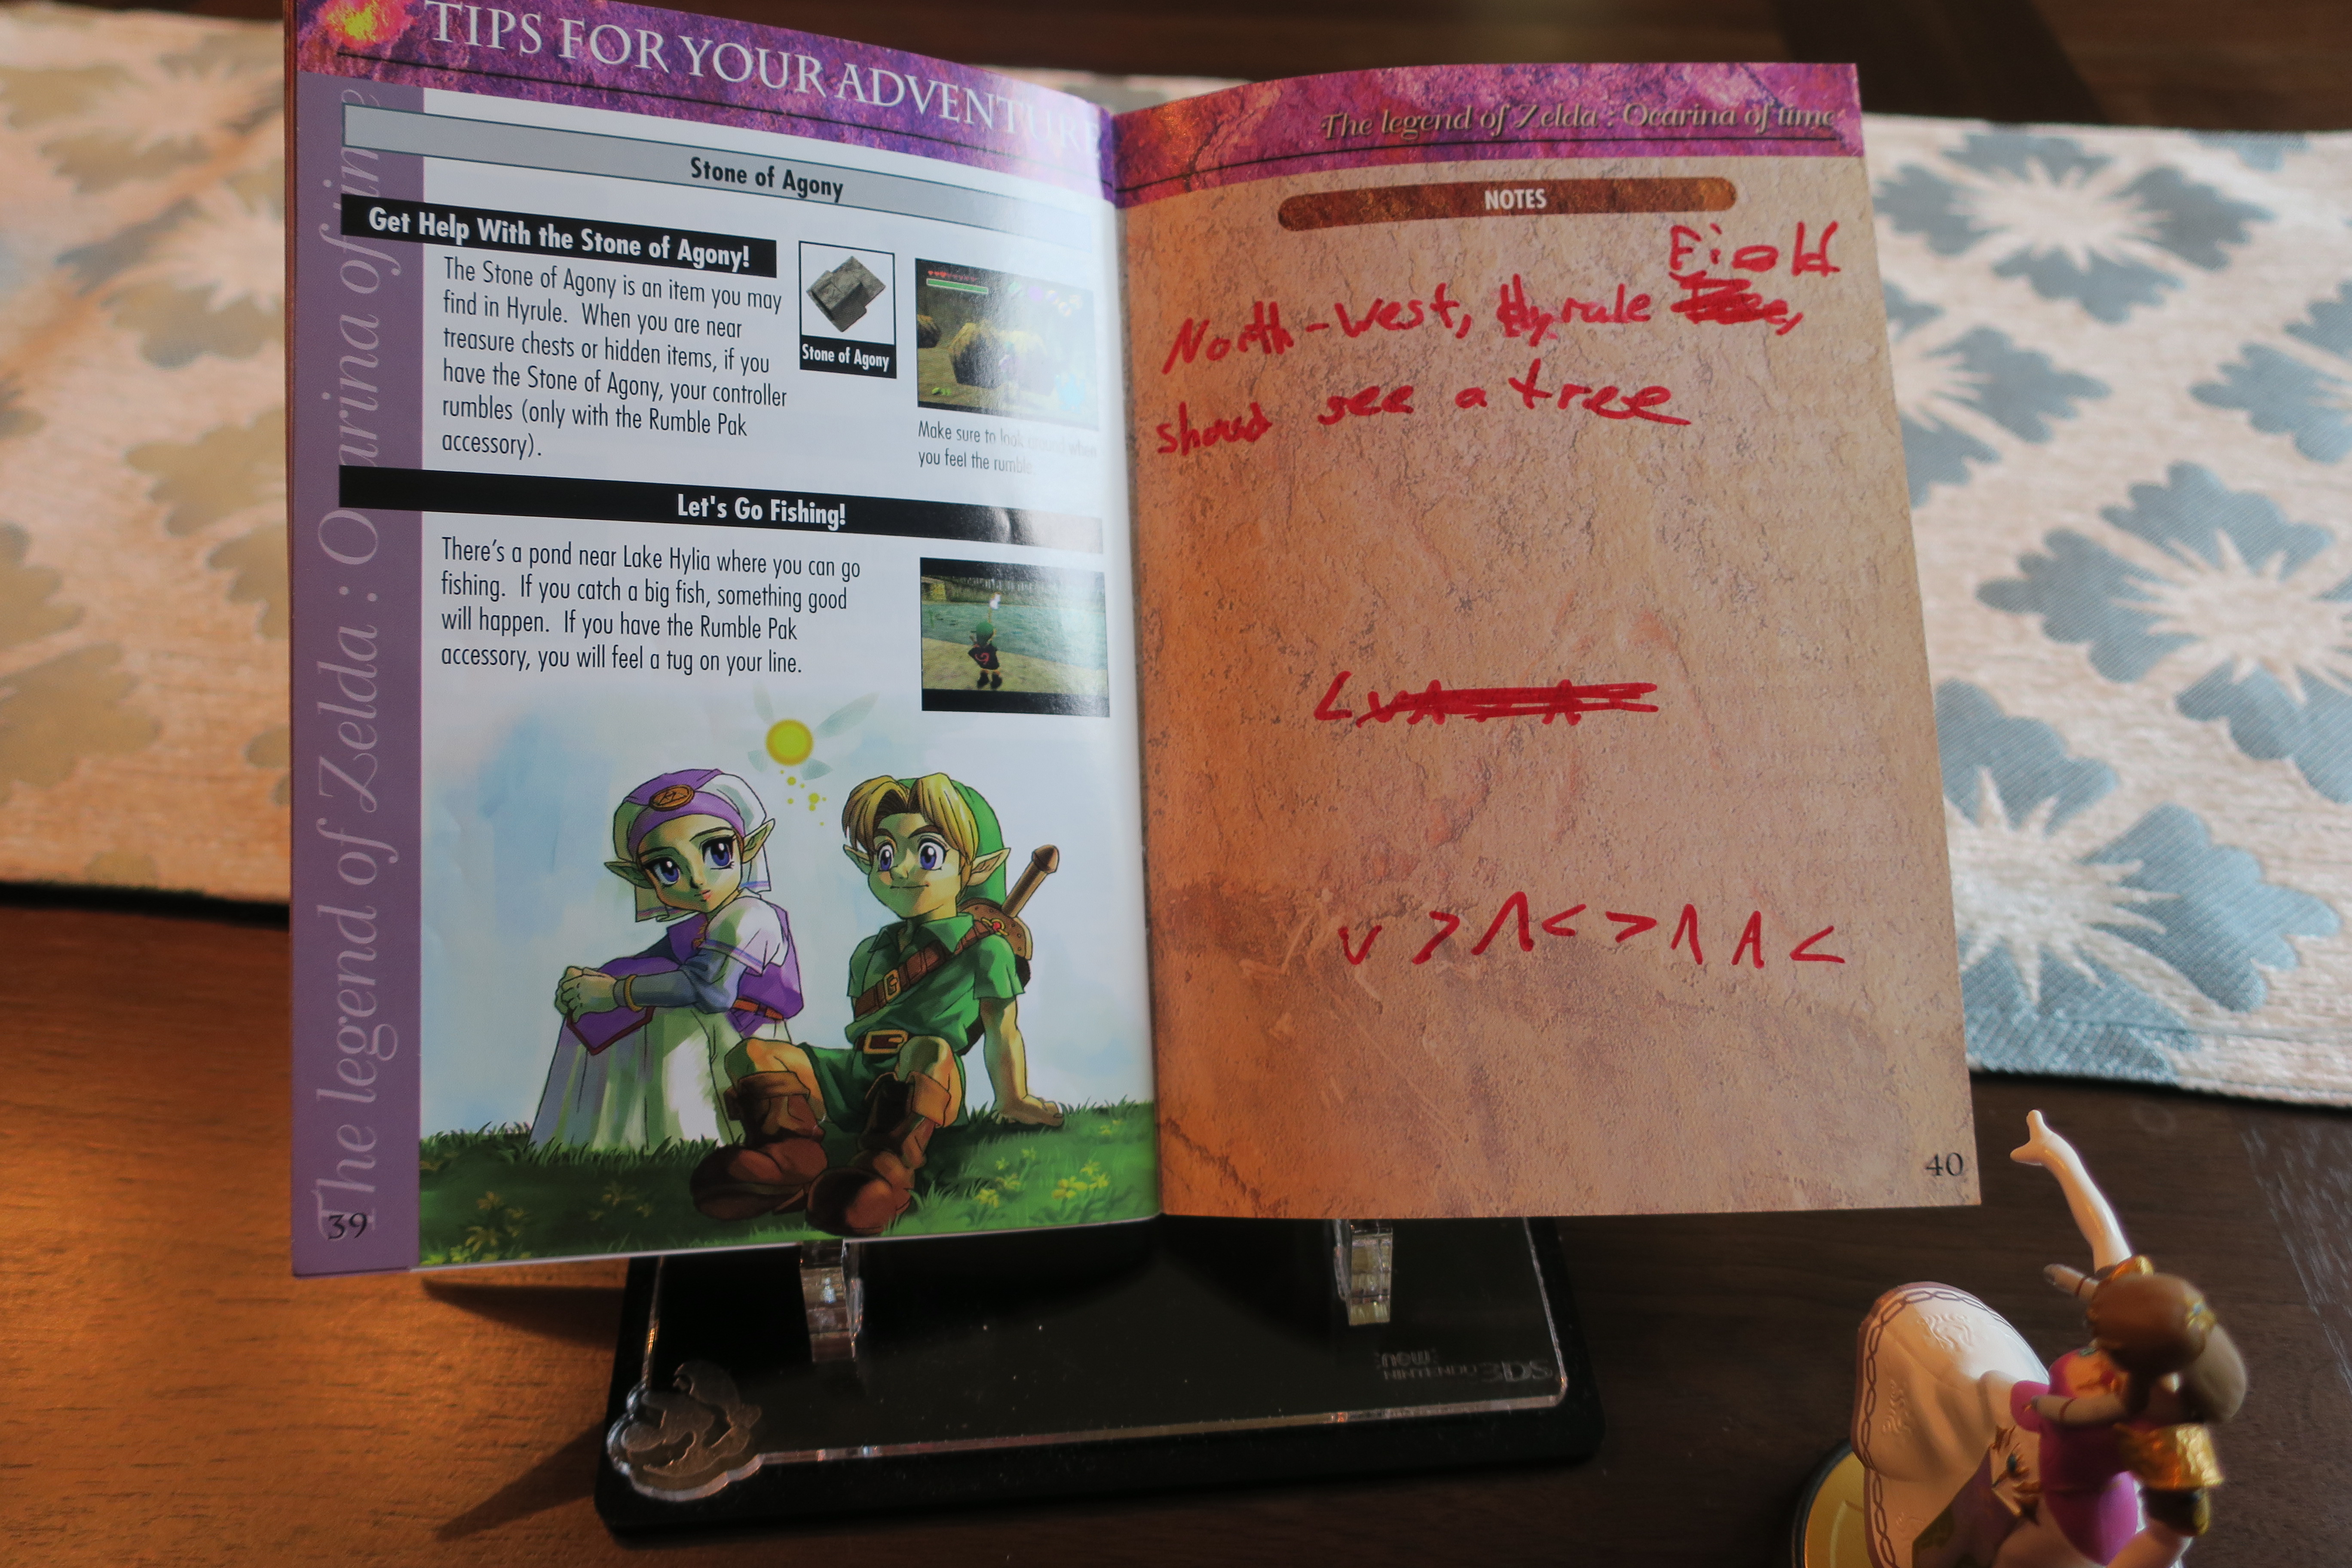 TIPS FOR YOUR ADVENTURE
Stone of Agony
Get Help With the Stone of Agony!
The Stone of Agony is an item you may
find in Hyrule. When you are near
treasure chests or hidden items, if you
have the Stone of Agony, your controller
rumbles (only with the Rumble Pak
accessory).
Stone of Agony
Make sure to look around when
you feel the rumble
Let's Go Fishing!
There's a pond near Lake Hylia where you can go
fishing. If you catch a big fish, something good
will happen. If you have the Rumble Pak
accessory, you will feel a tug on your line.
The legend of Zelda : Ocarina of time
39
The legend of Zelda : Ocarina of time
NOTES
Field
North-West, Hyrule
see a tree
V > Λ < > Λ Λ <
40
new
NINTENDO 3DS